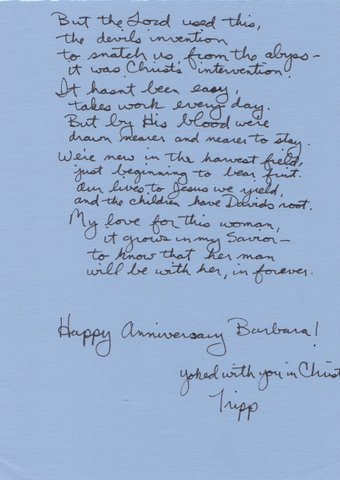 But the Lord used this,
the devils invention
to snatch us from the abyss –
it was Christ's intervention.
It hasnt been easy,
takes work every day.
But by His blood were
drawn nearer and nearer to stay.
We're new in the harvest field,
just beginning to bear fruit.
Our lives to Jesus we yield,
and the children have Davids root.
My love for this woman,
it grows in my Savior –
to know that her man
will be with her, in forever.
Happy Anniversary Barbara!
yoked with you in Christ
Tripp